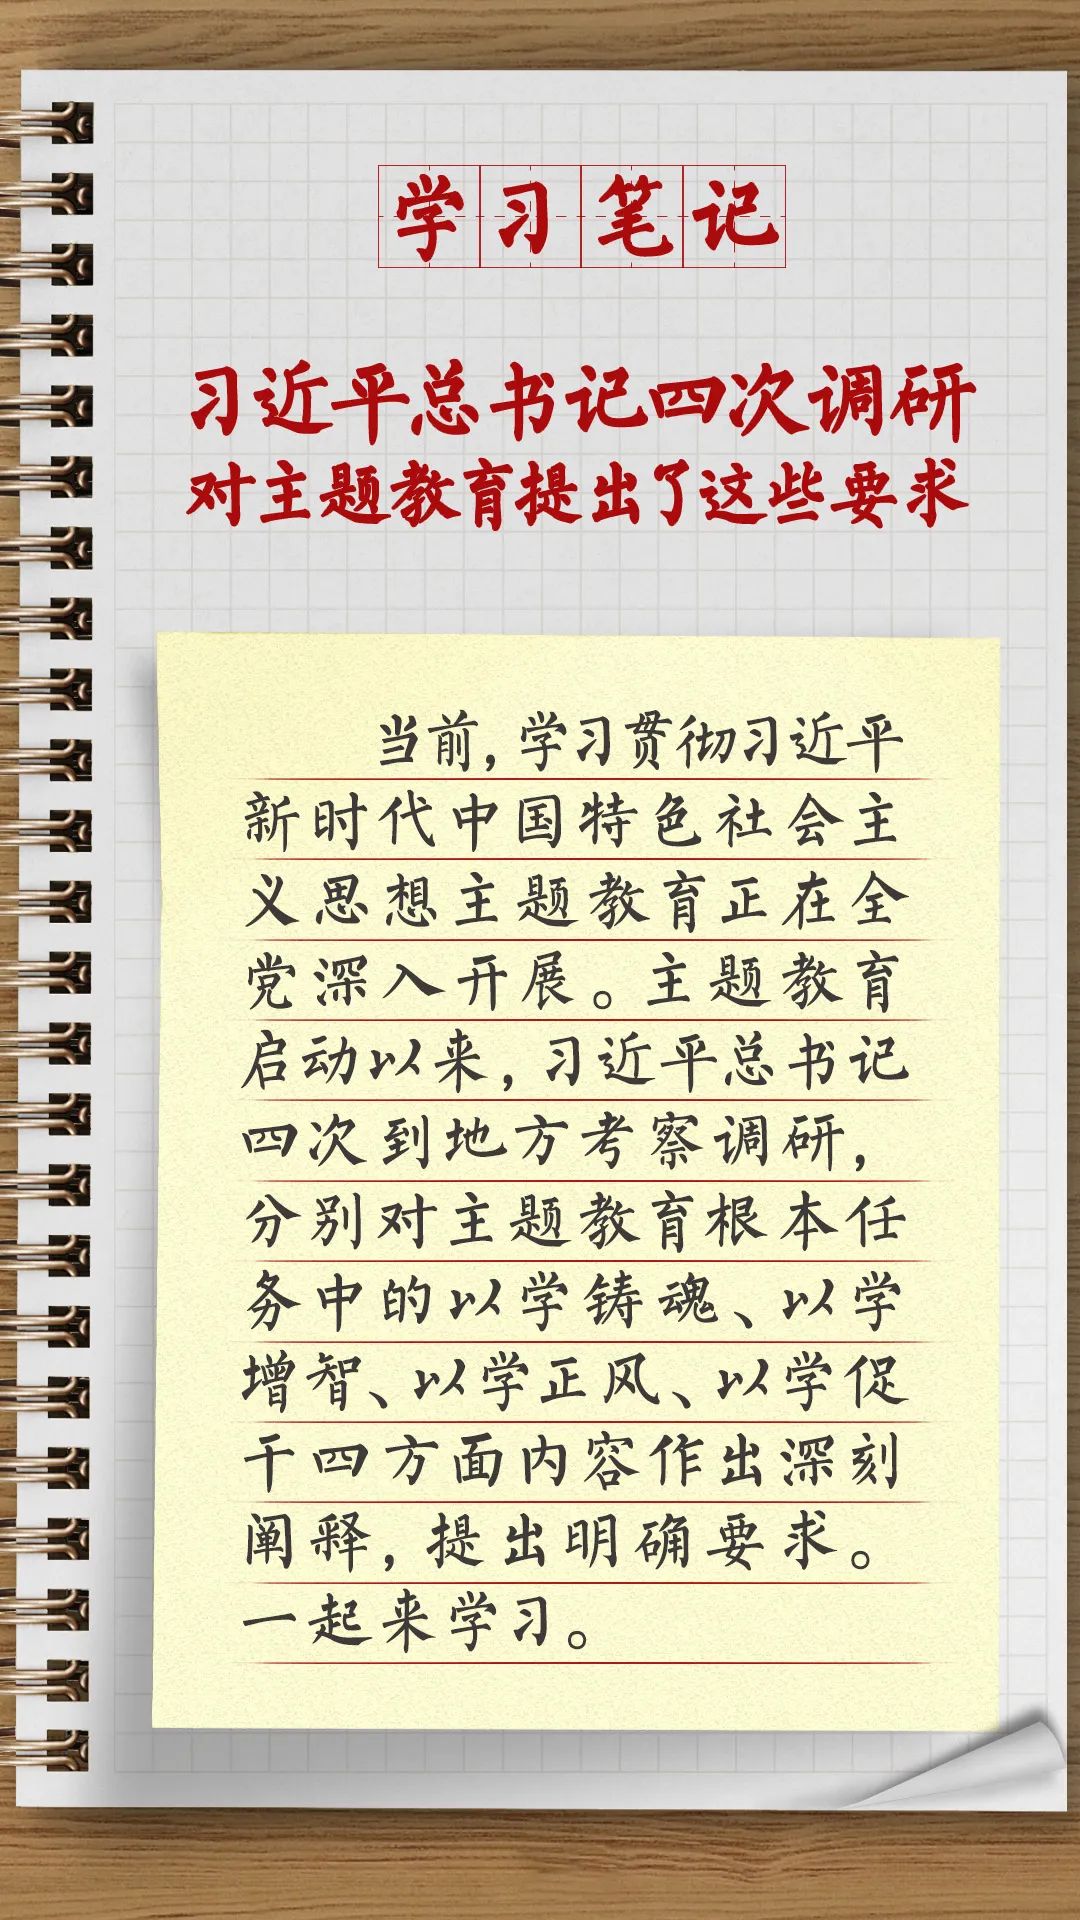 学习笔记
习近平总书记四次调研
对主题教育提出了这些要求
当前,学习贯彻习近平
新时代中国特色社会主
义思想主题教育正在全
党深入开展。主题教育
启动以来,习近平总书记
四次到地方考察调研,
分别对主题教育根本任
务中的以学铸魂、以学
增智、以学正风、以学促
干四方面内容作出深刻
阐释,提出明确要求。
一起来学习。